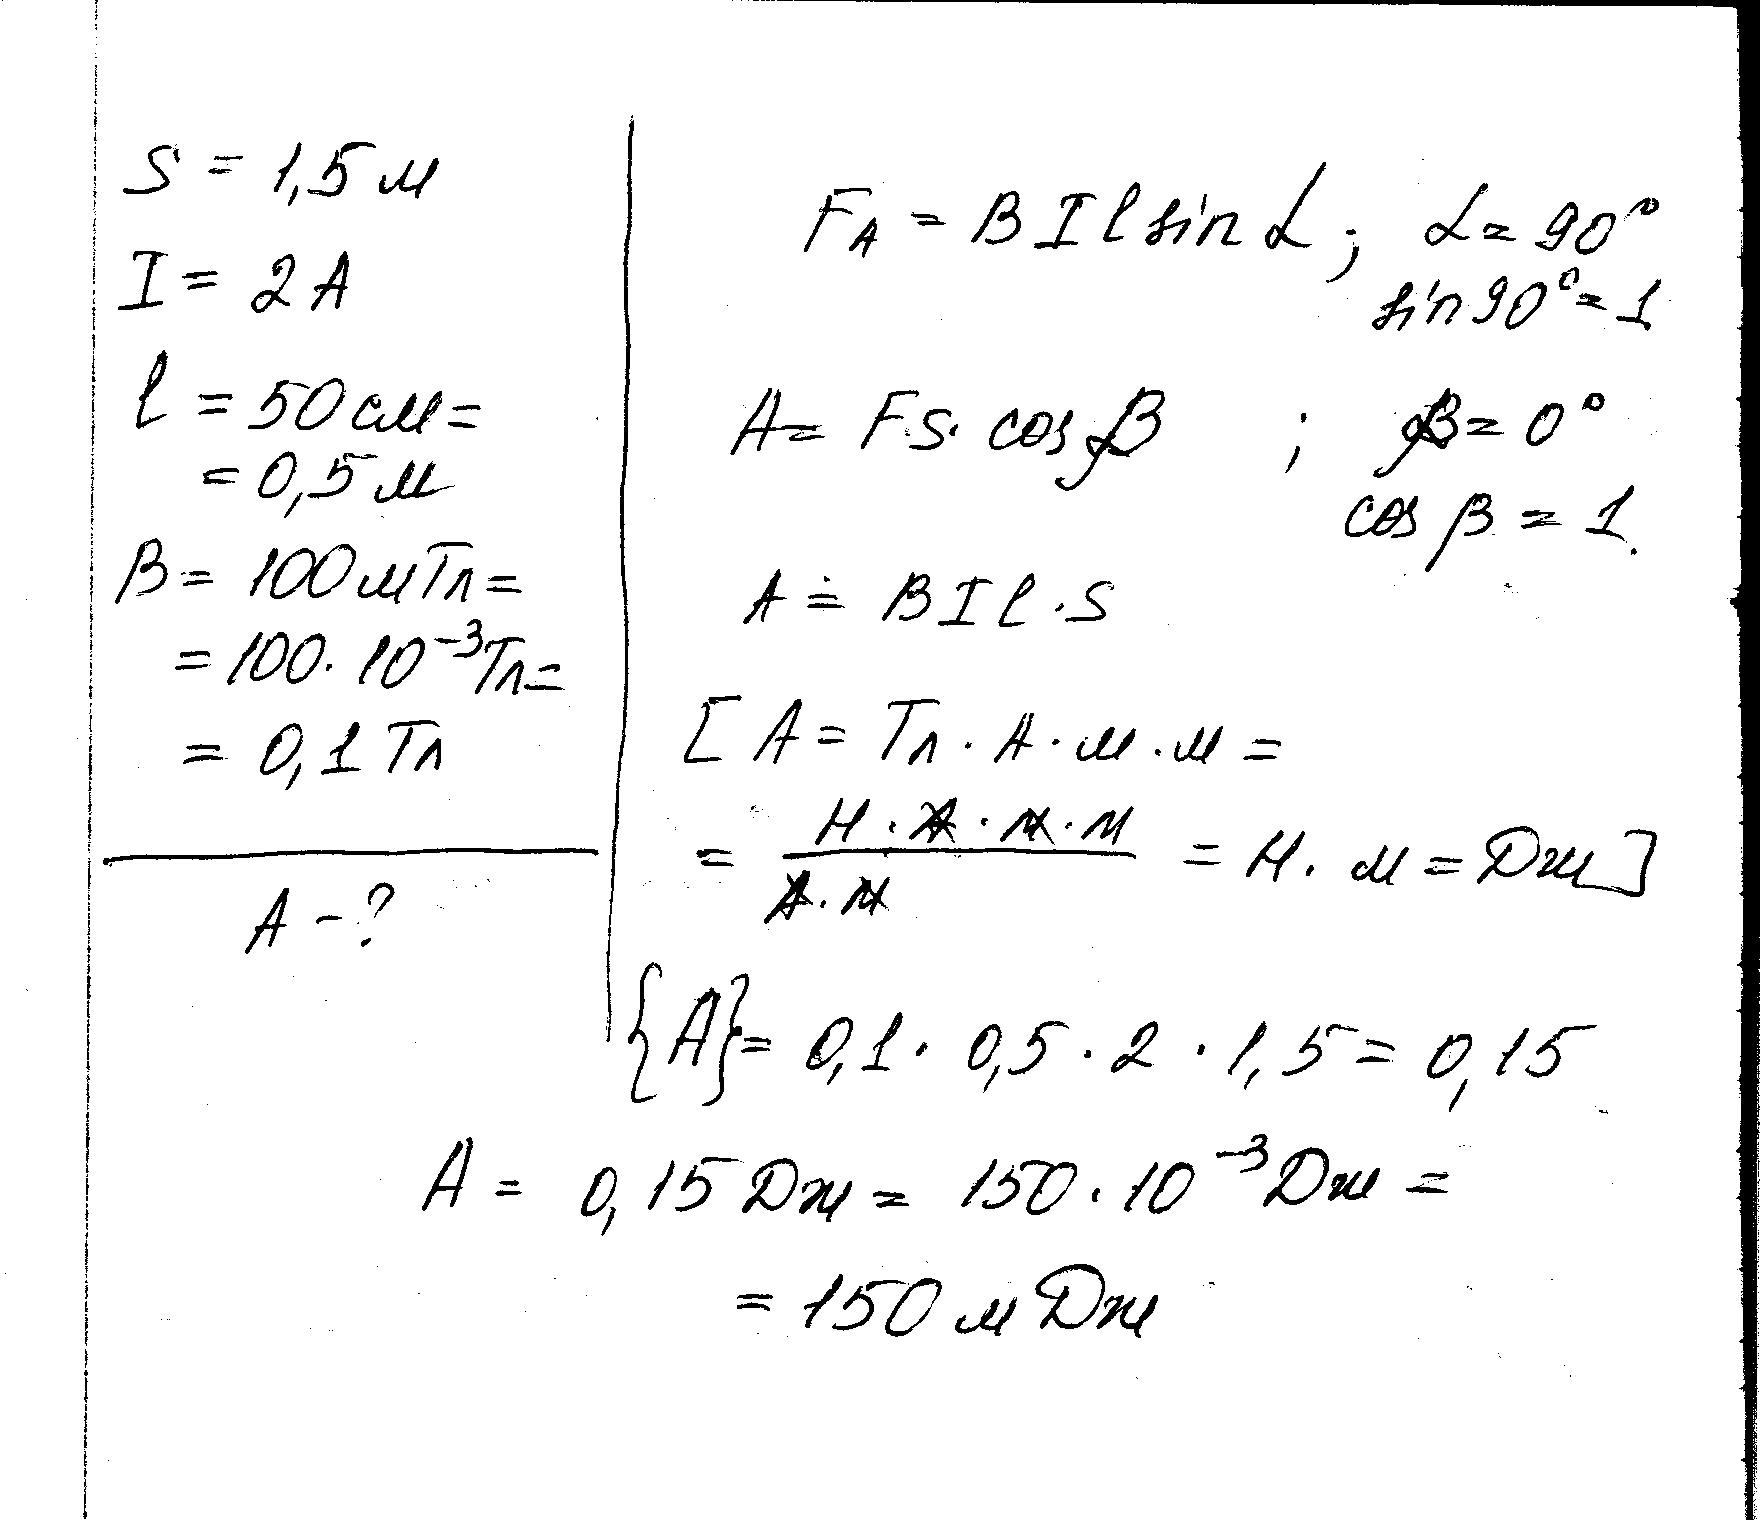 S = 1,5 м
I = 2 А
l = 50 см =
= 0,5 м
B = 100 мТл =
= 100 · 10⁻³ Тл =
= 0,1 Тл
А - ?
F_A = B I l sin α ; α = 90°
sin 90° = 1
A = F S · cos β ; β = 0°
cos β = 1.
A = B I l · S
[ A = Тл · А · м · м =
= Н · А · м · м / А · м = Н · м = Дж ]
{A} = 0,1 · 0,5 · 2 · 1,5 = 0,15
A = 0,15 Дж = 150 · 10⁻³ Дж =
= 150 мДж